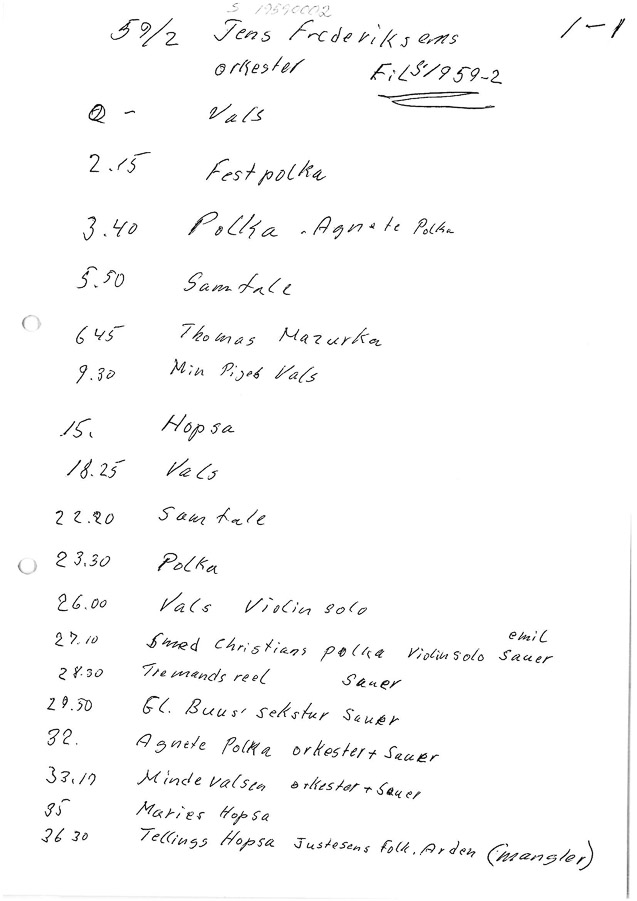 S 19590002
59/2 Jens Frederiksens 1-1
orkester FilS1959-2
0 - Vals
2.15 Festpolka
3.40 Polka. Agnete Polka
5.50 Samtale
645 Thomas Mazurka
9.30 Min Pijeb Vals
15. Hopsa
18.25 Vals
22.20 Samtale
23.30 Polka
26.00 Vals Violin solo
27.10 Smed Christians polka Violinsolo emil Sauer
28.30 Tremandsreel Sauer
29.50 Gl. Buus' sekstur Sauer
32. Agnete Polka orkester + Sauer
33.10 Mindevalsen orkester + Sauer
35 Maries Hopsa
36 30 Tellings Hopsa Justesens Folk. Arden (mangler)